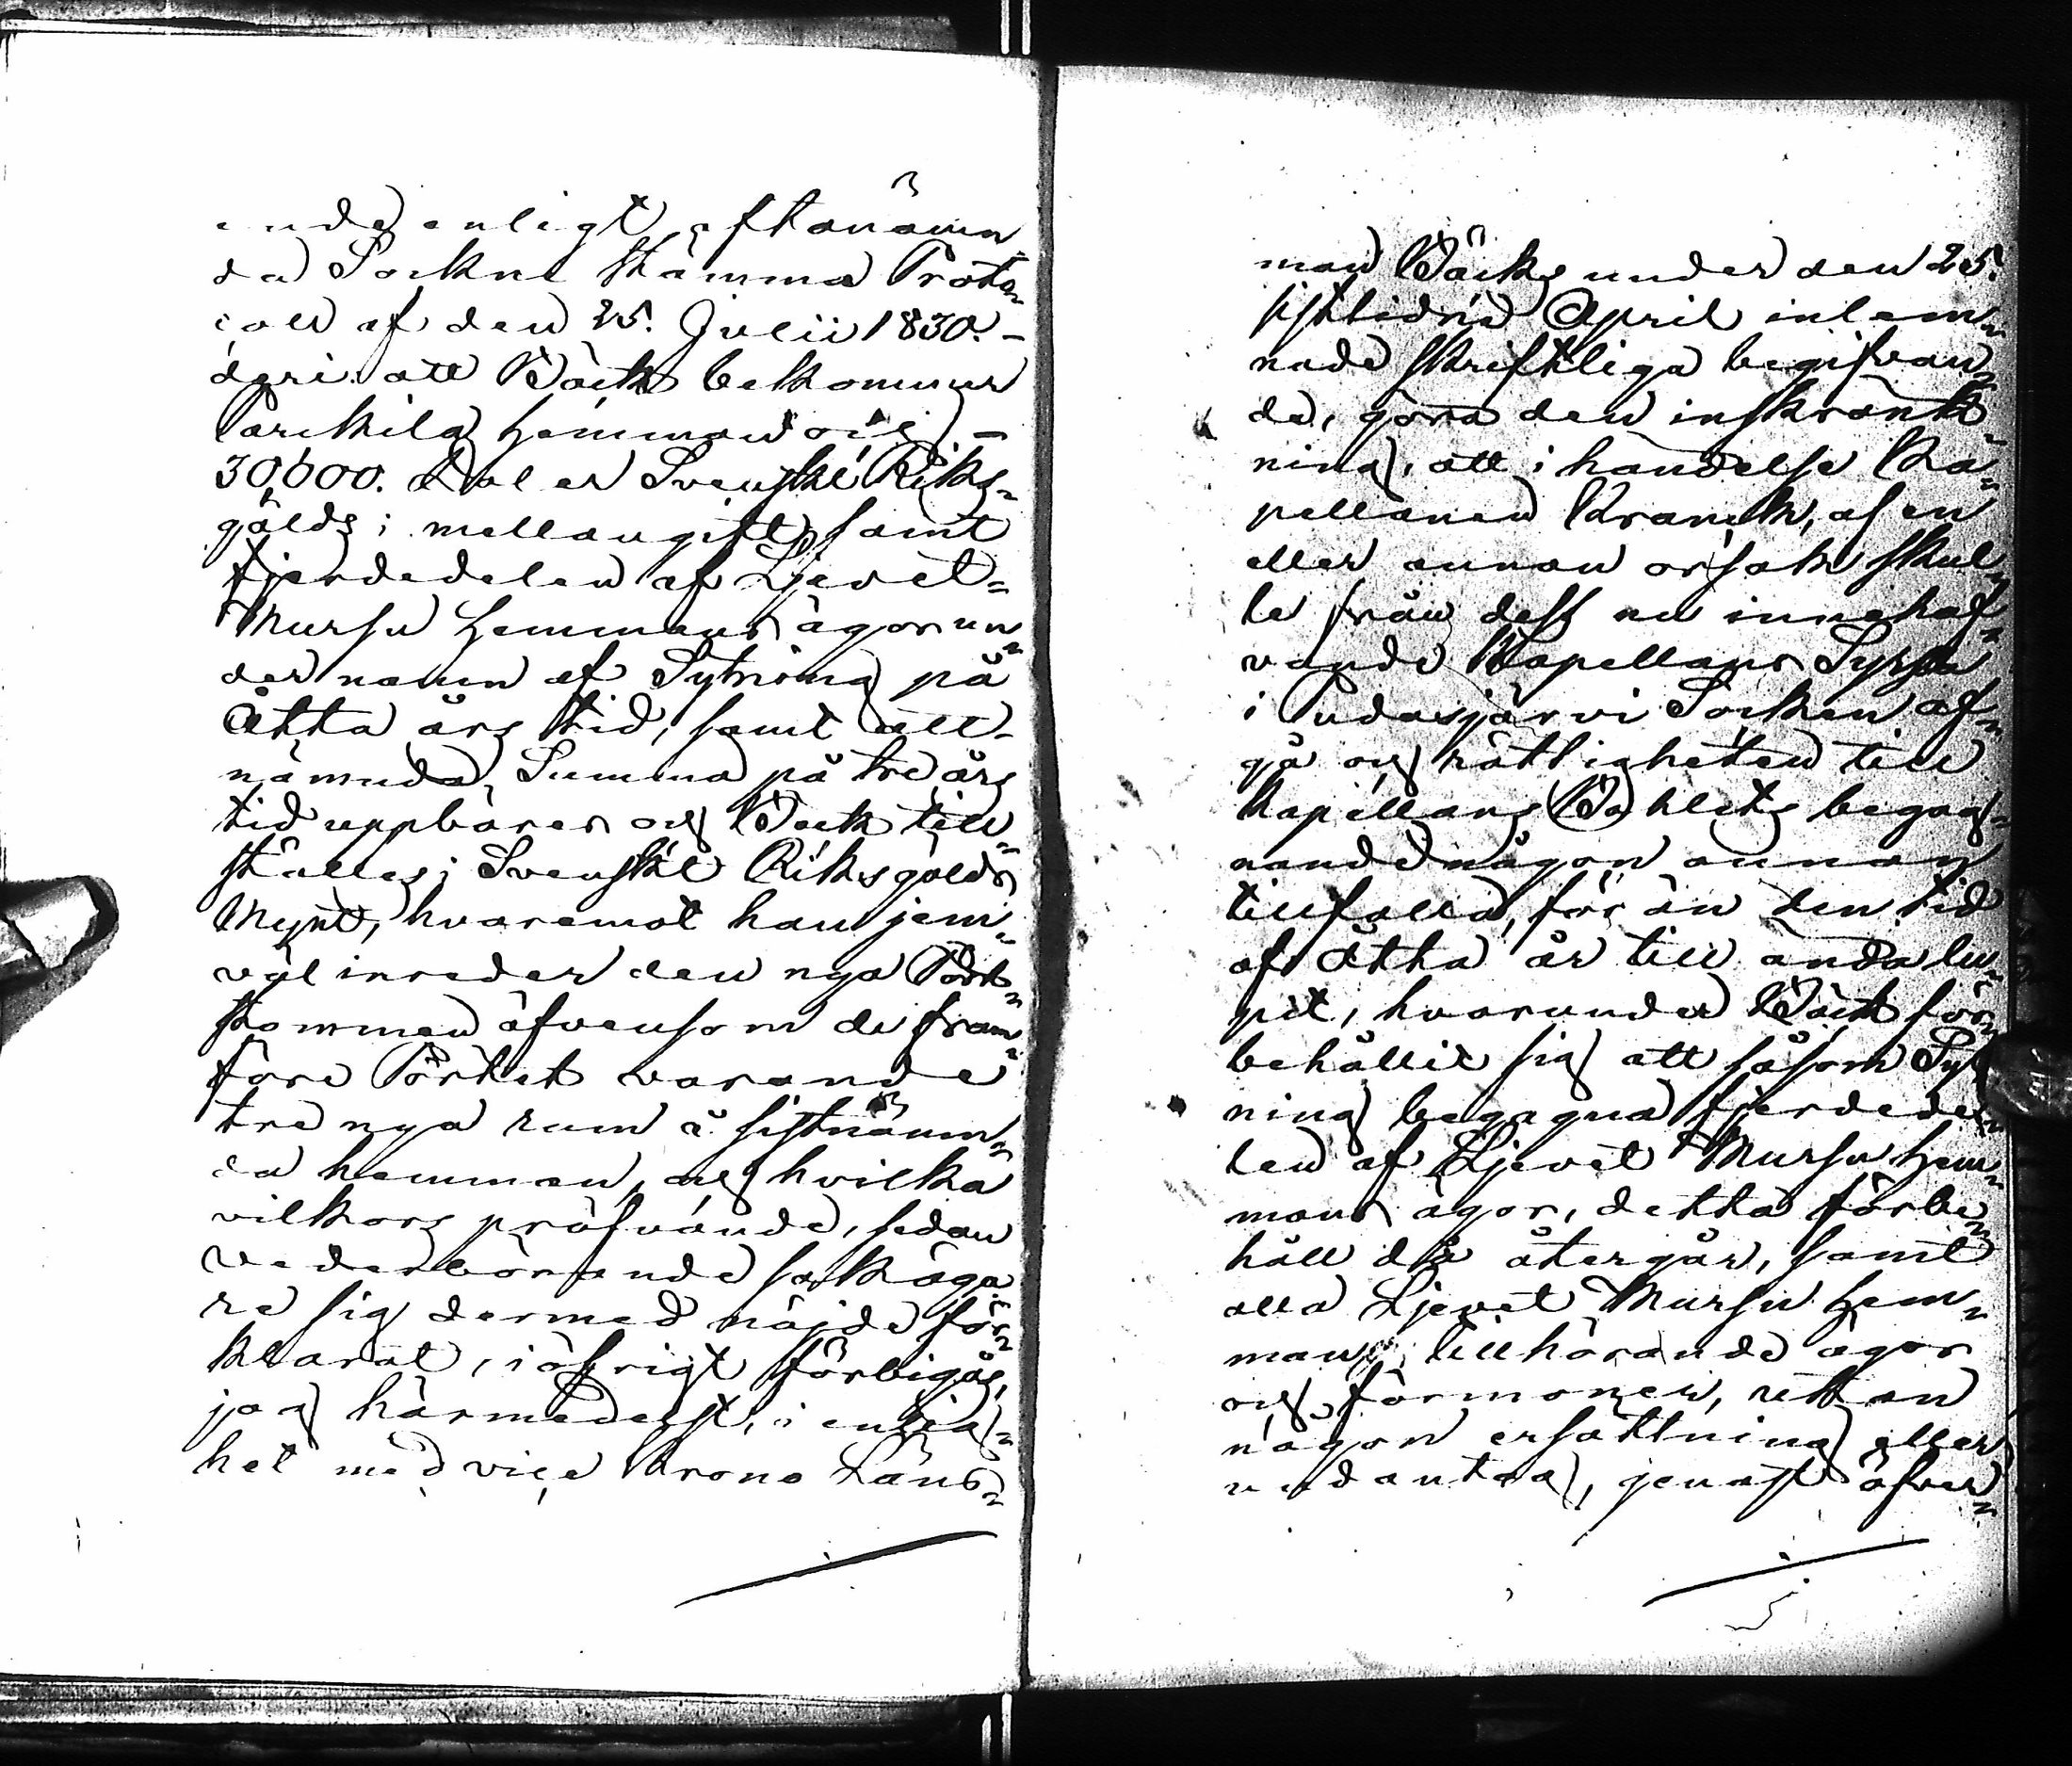 ende enligt oftanämn=
da Sockne Stämma Proto=
coll af den 25. Julii 1830. -
deri att Bäck bekommer
Parkkila Hemman och -
30,600. Daler Svenskt Riks=
gälds i mellangift samt
fjerdedelen af Ljevet=
Mursu Hemmans ägor un=
der namn af Sytning på
Åtta års tid, samt att
nämnda Summa på tre års
tid uppbäres och Bäck till=
ställes i Svenskt Riksgälds
Mynt, hvaremot han jem=
väl inreder den nya Pört=
stommen äfvensom de fram=
före Pörtet varande
tre nya rum å sistnämn=
da hemman, och hvilka
vilkors pröfvande, sedan
vederbörande sakäga
re sig dermed nöjde för=
klarat, i öfrigt förbigås,
jag härmedelst, i enlig=
het med vice Krono Läns=
man Bäcks under den 25.
sistlidne April inlem=
nade skriftliga begifvan=
de, göra den inskränk=
ning, att i händelse Ka=
pellanen Kranck, af en
eller annan orsak skul=
le från dess nu innehaf=
vande Kapellans Syssla
i Pudasjärvi Socken af=
gå och rättigheten till
Kapellans Bohlets begag=
nande någon annan
tillfalla, för än den tid
af Åtta år till ända lu=
pit, hvarunder Bäck för=
behållit sig att såsom Syt
ning begagna fjerdede=
len af Ljevet Mursu Hem=
mans ägor, detta förbe=
håll då återgår, samt
alla Ljevet Mursu Hem=
mans tillhörande ägor
och förmoner, utan
någon ersättning eller
undantag, genast öfver=